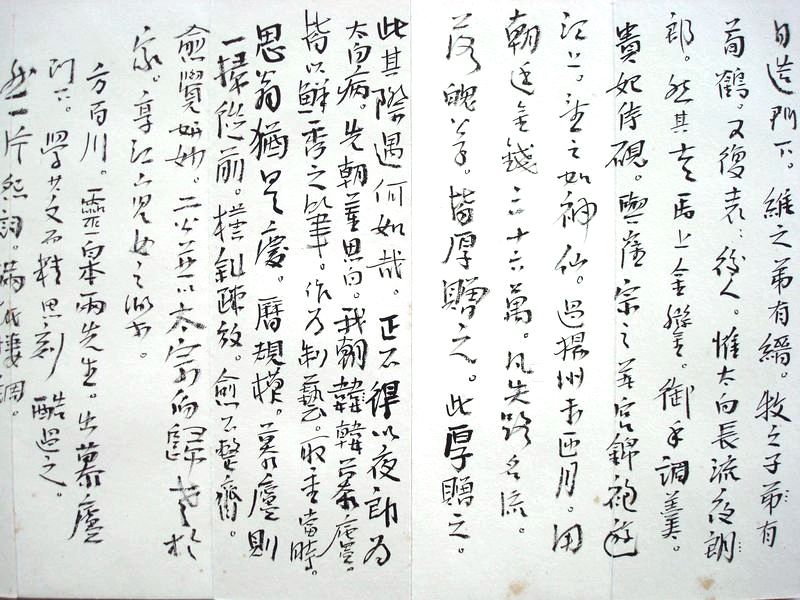 日造門下。維之弟有縉。牧之子弟有
荀鶴。又復表表後人。惟太白長流夜朗
郎。然其走馬上金鑾。御手調羹。
貴妃侍硯。與崔宗之著宮錦袍遊
江上。望之如神仙。過揚州未匝月。用
朝廷金錢三十六萬。凡失路名流。
落魄公子。皆厚贈之。此厚贈之。
此其際遇何如哉。正不得以夜郎為
太白病。先朝董思白。我朝韓韓慕廬。
皆以鮮秀之筆。作為制藝。取重當時。
思翁猶是慶。曆規模。慕廬則
一掃從前。橫斜疎放。愈不整齊。
愈覺妍妙。二公並以大宗伯歸老於
家。享江山兒女之樂。
方百川。靈皋兩先生。出慕廬
門下。學其文而精思刻酷過之。
然一片怨詞。滿紙悽調。